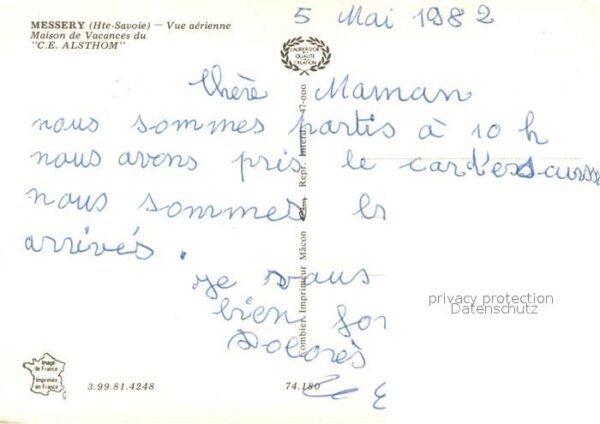 MESSERY (Hte-Savoie) — Vue aérienne
Maison de Vacances du
"C.E. ALSTHOM"
5 Mai 1982
LAURIER D'OR
QUALITÉ
CRÉATION
Chère Maman
nous sommes partis à 10 h
nous avons pris le car
nous sommes
arrivés.
je vous
bien
Dolorès
Combier Imprimeur Mâcon
Repr. Interd. 47-000
privacy protection
Datenschutz
Image
de France
Imprimée
en France
3.99.81.4248
74.180